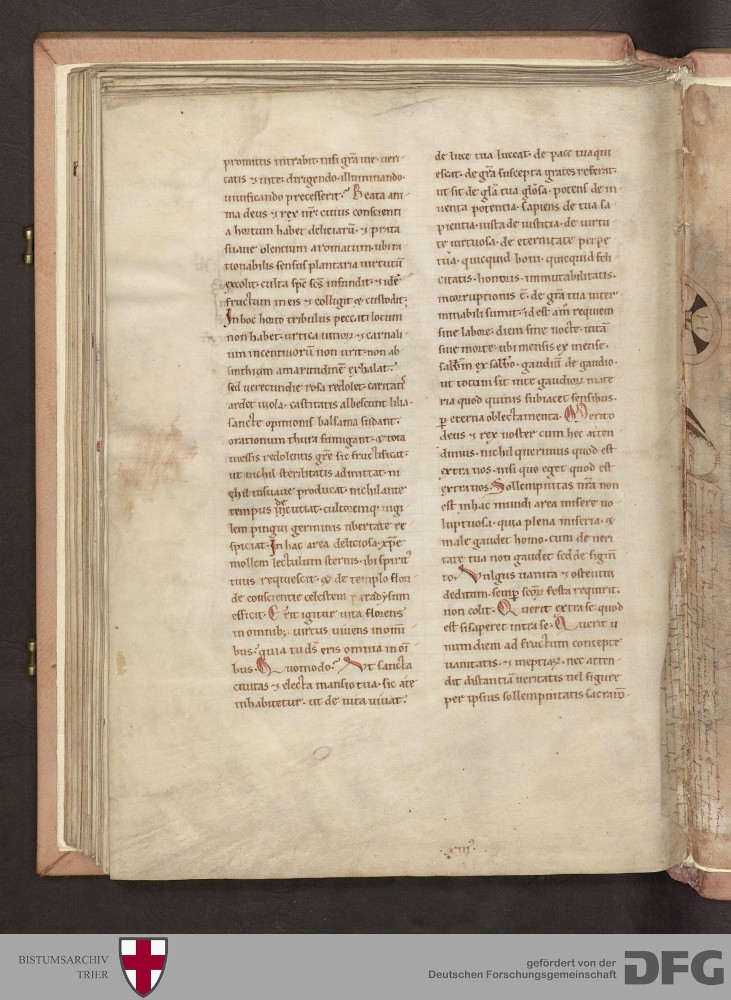 promittis intrabit· nisi gr̃a vie· veri-
tatis & vite· dirigendo· illuminando·
uiuificando precesserit. Beata ani-
ma deus & rex nr̃· cuius conscienti
a hortum habet deliciarũ· & prata
suaue olentium aromatum· ubi ra-
tionabilis sensus plantaria uirtutũ
excolit· culta spc̃ scs̃ infundit· & idẽ
fructum in eis & colligit & custodit·
In hoc horto tribulus peccati locum
non habet· urtica uitiorꝫ & carnali-
um incentiuorũ non urit· non ab
sinthium amarundinẽ exhalat·
sed uerecundie rosa redolet· caritatis
ardet uiola· castitatis albescunt lilia·
sancte opinionis balsama sudant·
orationum thura fumigant· & tota
messis redolentis gr̃e sic fructificat·
ut nichil sterilitatis admittat· ni-
chil insuaue producat· nichil ante
tempus decutiat· cultoremqꝫ uigi-
lem pingui germinis ubertate re-
spiciat· In hac area deliciosa· xp̃e
mollem lectulum sternis· ibi spirit᷒
tuus requiescit· & de templo flori-
de conscientie celestem paradysum
efficit· Erit igitur uita florens
in omnibꝫ· uirtus uiuens in om̃i-
bus· quia tu ds̃ eris omnia in oĩ-
bus. Quomodo? Vt sancta
ciuitas & electa mansio tua· sic a te
inhabitetur· ut de vita uiuat·
de luce tua luceat· de pace tua qui-
escat· de gr̃a suscepta grates referat·
ut sit de gl̃a tua gl̃osa· potens de in-
uenta potentia· sapiens de tua sa-
pientia· iusta de iusticia· de uirtu-
te uirtuosa· de eternitate perpe-
tua· quicquid boni· quicquid feli-
citatis· honoris· immutabilitatis·
incorruptionis ẽ· de gr̃a tua inter-
minabili sumit· id est añi requiem
sine labore· diem sine nocte· uitã
sine morte· ubi mensis ex mense·
sabb̃m ex sabb̃o· gaudiũ de gaudio·
ut totum sit in te gaudiorꝫ mate-
ria quod quinis subiacet sensibus·
ꝑ eterna oblectamenta. Merito
deus & rex noster cum hec atten-
dimus· nichil querimus quod est
extra nos· nisi quo eget quod est
extra nos· Sollempnitas nr̃a non
est in hac mundi area misere uo-
luptuosa· quia plena miseria· &
male gaudet homo· cum de ueri-
tate tua non gaudet sed de figm̃-
to· Vulgus uanita & ostentui
deditum· semꝑ festa requirit·
non colit· Querit extra se· quod
est si saperet intra se· Querit u-
num diem ad fructum concepte
uanitatis· & ineptiaꝫ· nec atten-
dit distantiam ueritatis uel figure
per ipsius sollempnitatis sacram̃·
·xiii᷒·
BISTUMSARCHIV
TRIER
gefördert von der
Deutschen Forschungsgemeinschaft
DFG